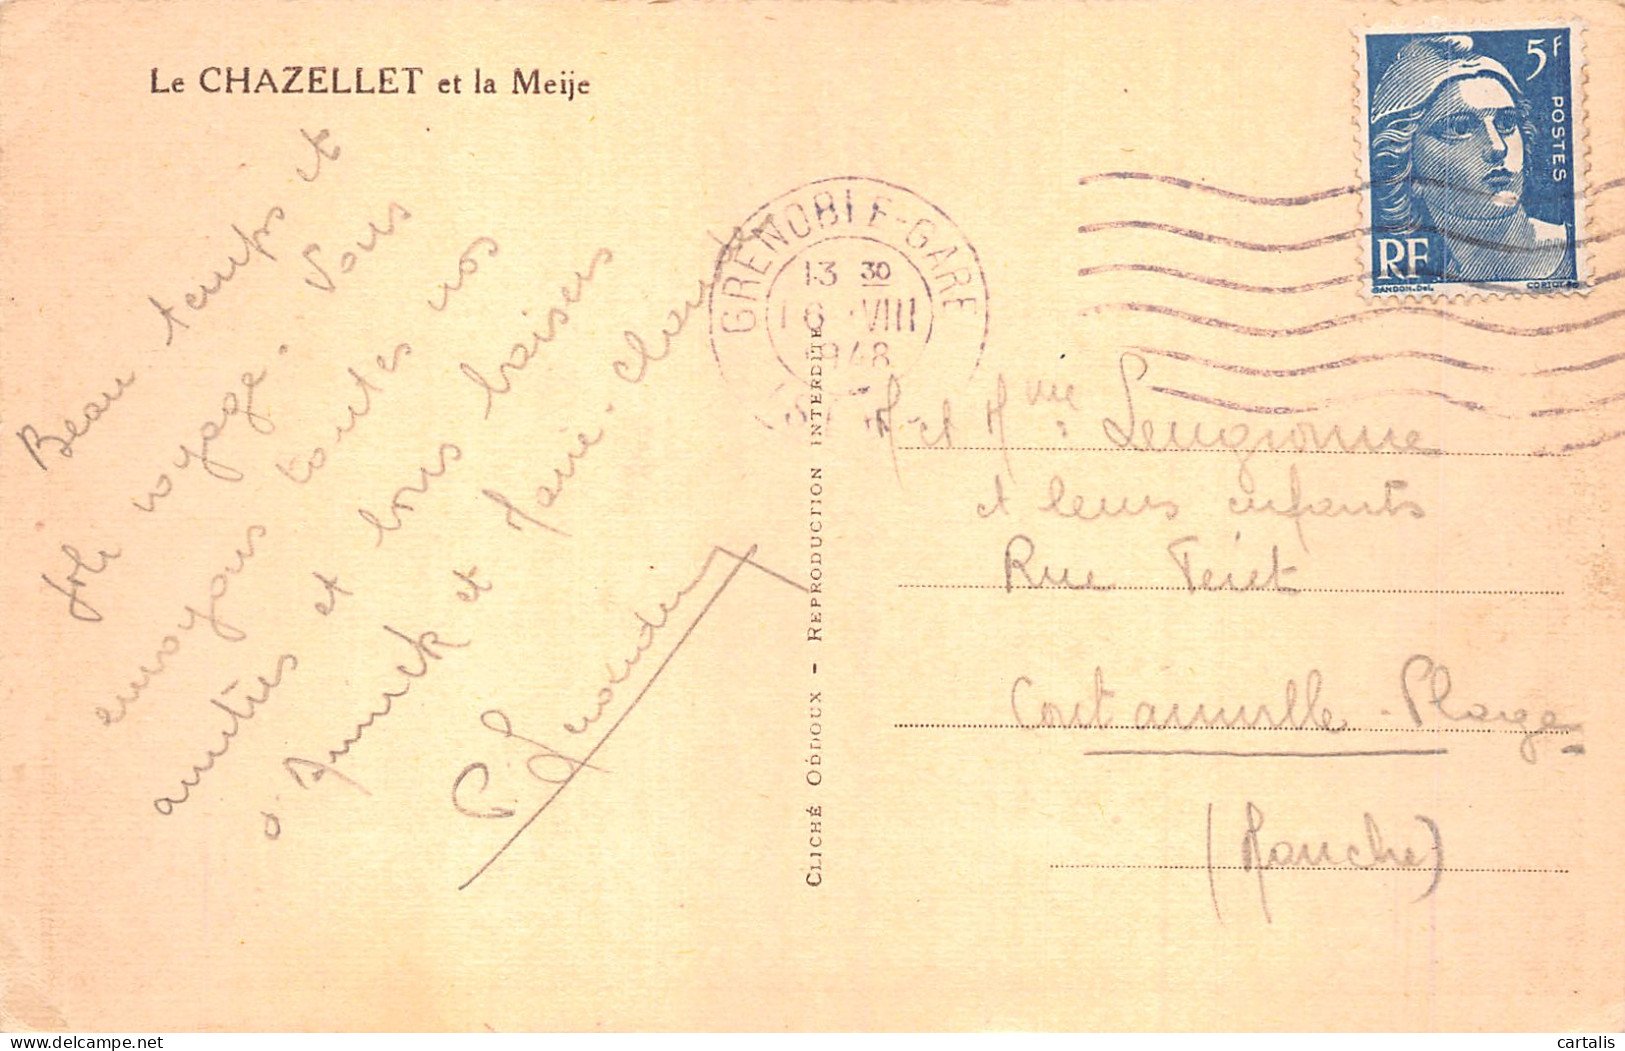 Le CHAZELLET et la Meije
Beau temps et
joli voyage. Vous
envoyons toutes nos
amitiés et bons baisers
à Annick et Marie-Claude
CLICHÉ ODDOUX - REPRODUCTION INTERDITE
GRENOBLE-GARE
13 30
VIII
1948
5F
POSTES
RF
GANDON.Del.
M et Mme
et leurs enfants
Rue
Coutainville-Plage
(Manche)
cartalis
delcampe.net